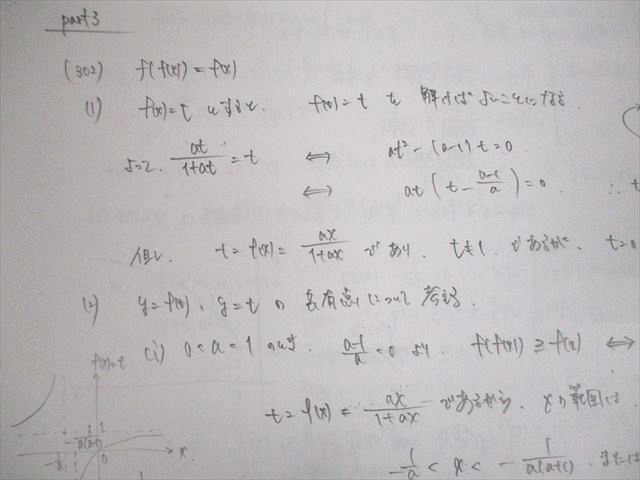 part 3
(302) f(f(x)) = f(x)
(1) f(x)=t とすると. f(t)=t を 解けばよいことになる
よって. at/(1+at) = t ⇔ at² - (a-1)t = 0
⇔ at(t - (a-1)/a) = 0 ∴ t
但し. t = f(x) = ax/(1+ax) であり. t≠1. であるが、 t=0
(2) y=f(x), y=t の 共有点について 考える.
(i) 0<a<1 のとき. (a-1)/a < 0 より f(f(x)) ≧ f(x) ⇔
t = f(x) = ax/(1+ax) であるから. xの範囲は.
-1/a < x < -1/(a(a+1))
f(x)=t
1
-1/a
0
x